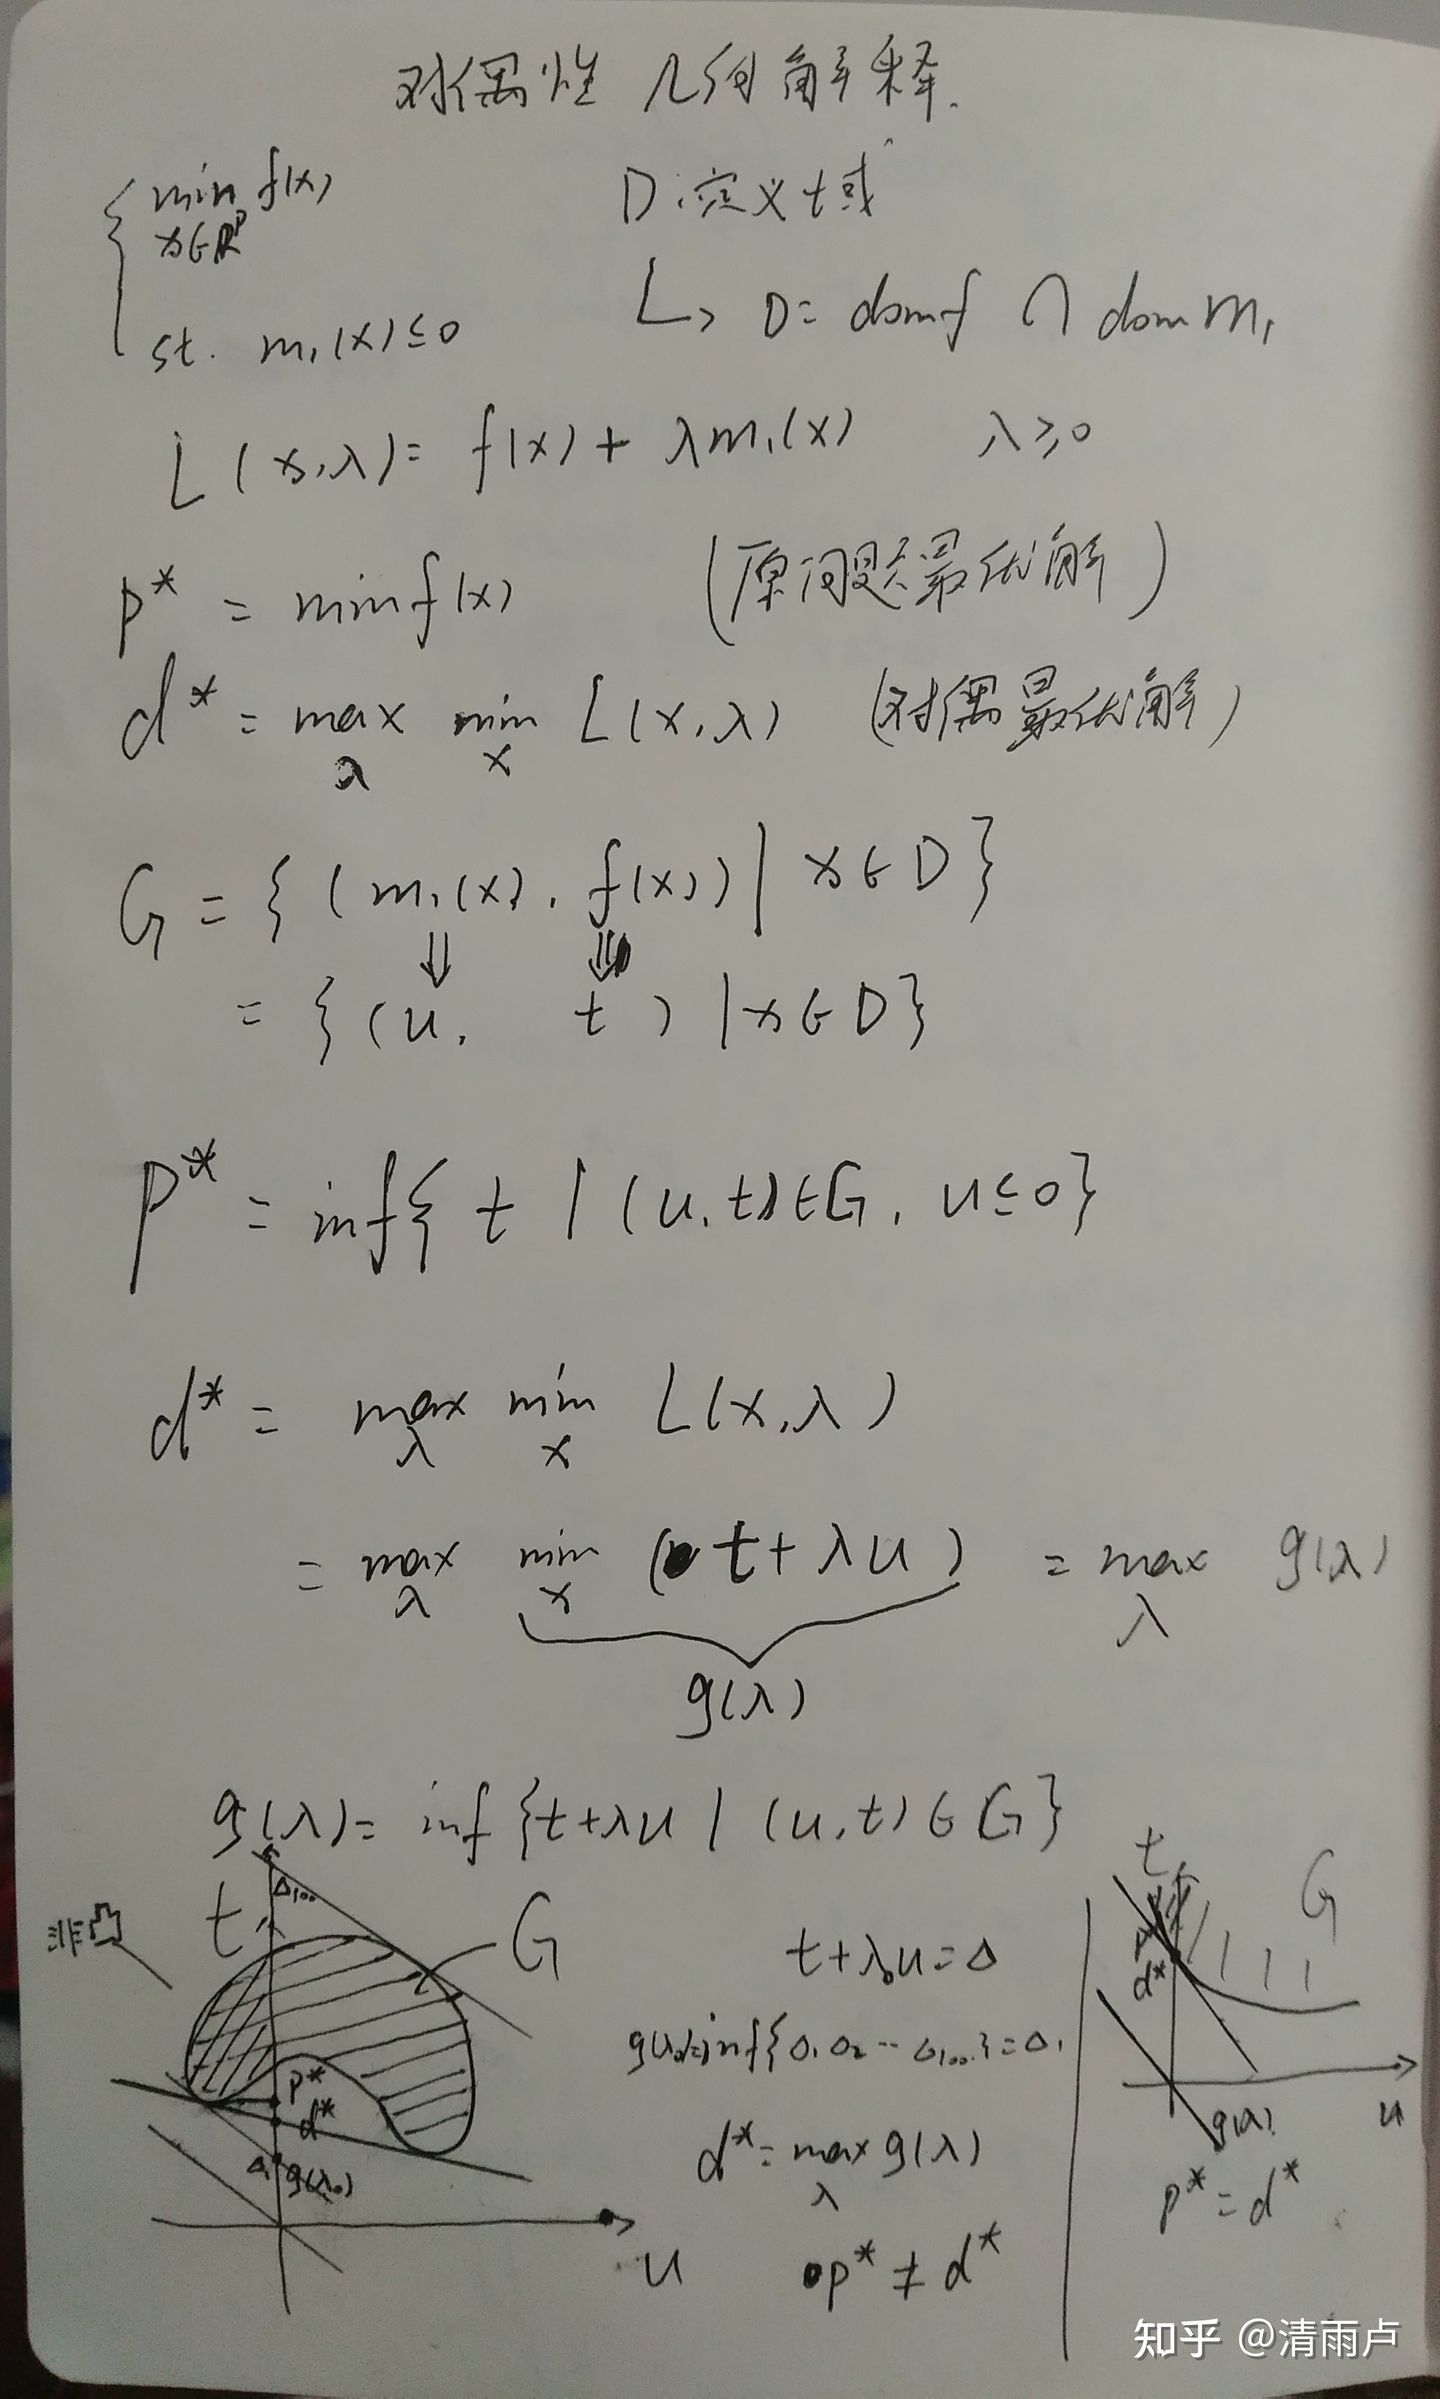 对偶性 几何解释.
min f(x)
x∈ℝᵖ
st. m₁(x)≤0
D:定义域
↳ D= domf ∩ dom m₁
L(x,λ)= f(x)+λm₁(x) λ≥0
p* = min f(x) (原问题最优解)
d* = max min L(x,λ) (对偶最优解)
λ x
G = {(m₁(x), f(x)) | x∈D}
⇓ ⇓
= {(u, t) | x∈D}
p* = inf{ t | (u,t)∈G, u≤0}
d* = max min L(x,λ)
λ x
= max min (t+λu) = max g(λ)
λ x λ
g(λ)
g(λ)= inf {t+λu | (u,t)∈G}
非凸
t
Δ₁₀₀
G
p*
d*
Δ₁ g(λ₀)
u
t+λ₀u=Δ
g(λ₀)=inf{Δ₁ Δ₂ ... Δ₁₀₀}=Δ₁
d*= max g(λ)
λ
p* ≠ d*
t
G
p*
d*
u
g(λ)
p*=d*
知乎 @清雨卢